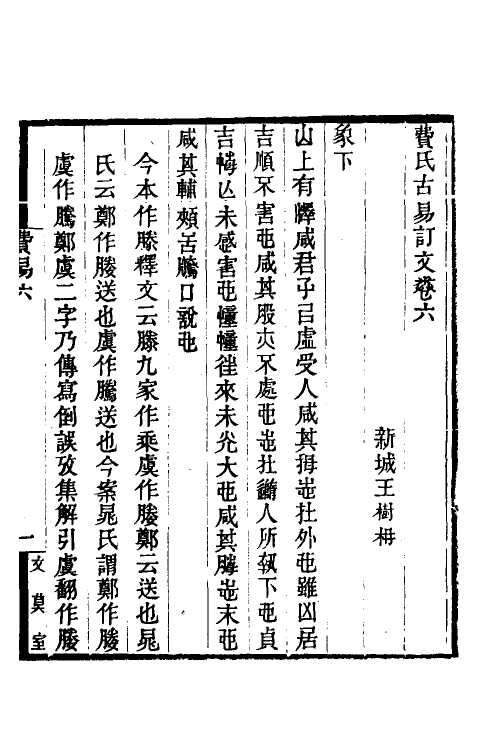 費氏古易訂文卷六
新城王樹枏
象下
山上有澤咸君子㠯虛受人咸其拇志在外也雖凶居
吉順不害也咸其股亦不處也志在隨人所執下也貞
吉悔亡未感害也憧憧往來未光大也咸其脢志末也
咸其輔頰舌騰口說也
今本作滕釋文云滕九家作乘虞作媵鄭云送也晁
氏云鄭作媵送也虞作騰送也今案晁氏謂鄭作媵
虞作騰鄭虞二字乃傳寫倒誤攷集解引虞翻作媵
費易六
一
文莫室